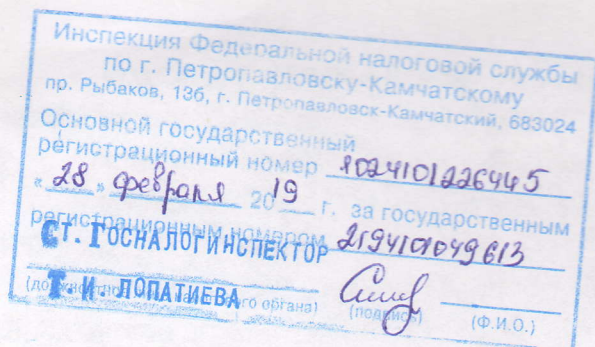 Инспекция Федеральной налоговой службы
по г. Петропавловску-Камчатскому
пр. Рыбаков, 13б, г. Петропавловск-Камчатский, 683024
Основной государственный
регистрационный номер 1024101226445
«28» февраля 2019 г. за государственным
регистрационным номером 2194101049613
СТ. ГОСНАЛОГИНСПЕКТОР
Т. И. ЛОПАТИЕВА
(до го органа) (подпись) (Ф.И.О.)